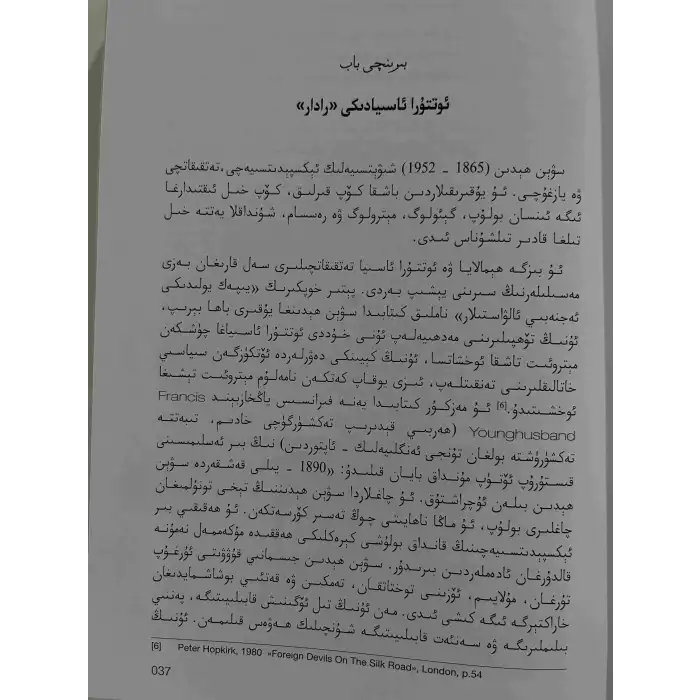 بىرىنچى باب
ئوتتۇرا ئاسىيادىكى «رادار»
سۋېن ھېدىن (1865 ـ 1952) شىۋېتسىيەلىك ئېكسپېدىتسىيەچى، تەتقىقاتچى
ۋە يازغۇچى. ئۇ يۇقىرىقىلاردىن باشقا كۆپ قىرلىق، كۆپ خىل ئىقتىدارغا
ئىگە ئىنسان بولۇپ، گېئولوگ، مېترولوگ ۋە رەسسام، شۇنداقلا يەتتە خىل
تىلغا قادىر تىلشۇناس ئىدى.
ئۇ بىزگە ھىمالايا ۋە ئوتتۇرا ئاسىيا تەتقىقاتچىلىرى سەل قارىغان بەزى
مەسىلىلەرنىڭ سىرىنى يېشىپ بەردى. پېتىر خوپكىرىك «يىپەك يولىدىكى
ئەجنەبىي ئالۋاستىلار» ناملىق كىتابىدا سۋېن ھېدىنغا يۇقىرى باھا بېرىپ،
ئۇنىڭ تۆھپىلىرىنى مەدھىيەلەپ ئۇنى خۇددى ئوتتۇرا ئاسىياغا چۈشكەن
مېتروئىت تاشقا ئوخشاتسا، ئۇنىڭ كېيىنكى دەۋرلەردە ئۆتكۈزگەن سىياسىي
خاتالىقلىرىنى تەنقىتلەپ، ئىزى يوقاپ كەتكەن نامەلۇم مېتروئىت تېشىغا
ئوخشىتىدۇ.[6] ئۇ مەزكۇر كىتابىدا يەنە فرانسىس ياڭخازبېند Francis
Younghusband (ھەربىي قېدىرىپ تەكشۈرگۈچى خادىم، تىبەتتە
تەكشۈرۈشتە بولغان تۇنجى ئەنگلىيەلىك ـ ئاپتوردىن) نىڭ بىر ئەسلىمىسىنى
قىستۇرۇپ ئۆتۈپ مۇنداق بايان قىلىدۇ: «1890 ـ يىلى قەشقەردە سۋېن
ھېدىن بىلەن ئۇچراشتۇق. ئۇ چاغلاردا سۋېن ھېدىننىڭ تېخى تونۇلمىغان
چاغلىرى بولۇپ، ئۇ ماڭا ناھايىتى چوڭ تەسىر كۆرسەتكەن. ئۇ ھەقىقىي بىر
ئېكسپېدىتسىيەچىنىڭ قانداق بولۇشى كېرەكلىكى ھەققىدە مۇكەممەل نەمۇنە
قالدۇرغان ئادەملەردىن بىرىدۇر. سۋېن ھېدىن جىسمانىي قۇۋۋىتى ئۇرغۇپ
تۇرغان، مۇلايىم، ئۆزىنى توختاتقان، تەمكىن ۋە قەتئىي بوشاشمايدىغان
خاراكتېرگە ئىگە كىشى ئىدى. مەن ئۇنىڭ تىل ئۆگىنىش قابىلىيىتىگە، پەننىي
بىلىملىرىگە ۋە سەنئەت قابىلىيىتىگە شۇنچىلىك ھەۋەس قىلىمەن. ئۇنىڭ
[6] Peter Hopkirk, 1980 «Foreign Devils On The Silk Road», London, p.54
037